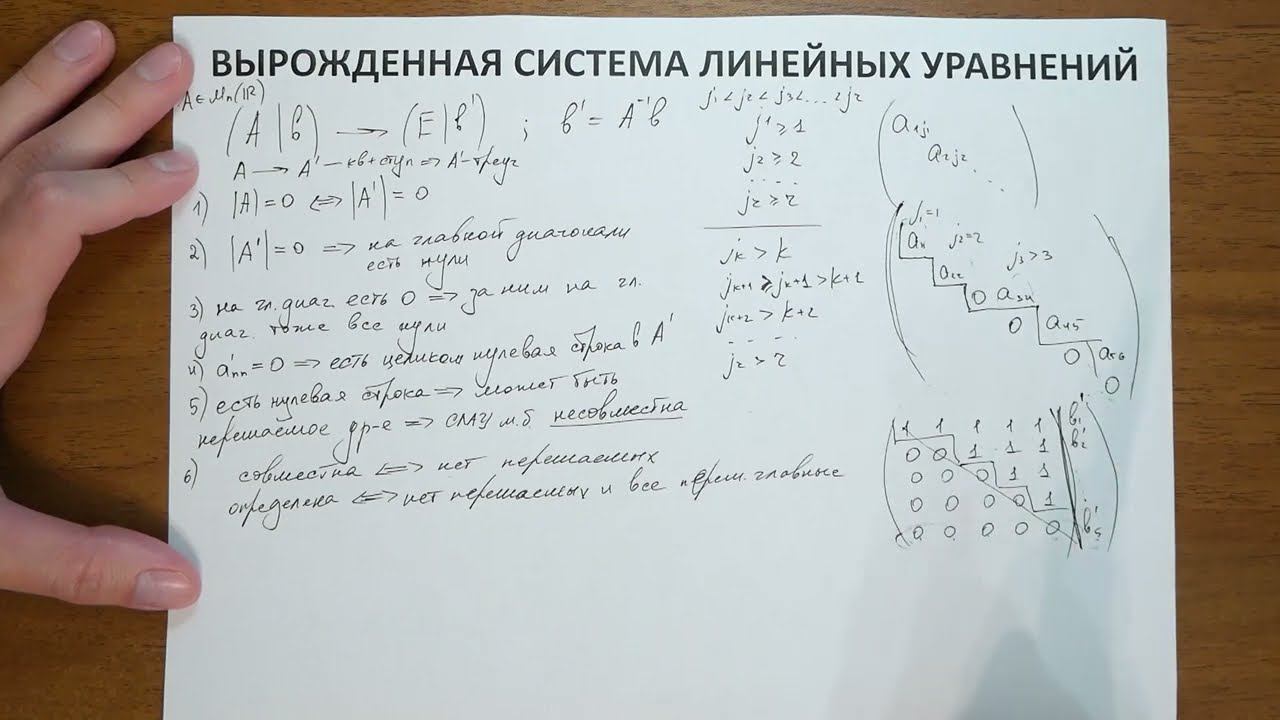 ВЫРОЖДЕННАЯ СИСТЕМА ЛИНЕЙНЫХ УРАВНЕНИЙ
A ∈ Mn(ℝ)
(A | b) → (E | b') ; b' = A⁻¹b
A → A' – кв+ступ ⇒ A' – треуг
1) |A| = 0 ⇔ |A'| = 0
2) |A'| = 0 ⇒ на главной диагонали
есть нули
3) на гл. диаг есть 0 ⇒ за ним на гл.
диаг. тоже все нули
4) a'nn = 0 ⇒ есть целиком нулевая строка в A'
5) есть нулевая строка ⇒ может быть
нерешаемое ур-е ⇒ СЛАУ м.б. несовместна
6) совместна ⇔ нет нерешаемых
определена ⇔ нет нерешаемых и все перем. главные
j1 < j2 < j3 < ... < jr
j1 ≥ 1
j2 ≥ 2
. . . .
jr ≥ r
jk > k
jk+1 ≥ jk+1 > k+1
jk+2 > k+2
. . . .
jr > r
a1j1
a2j2
. . .
j1=1
a11 j2=2
a22 j3>3
0 a34
0 a45
0 a56
0
1 1 1 1 1 b'1
0 0 1 1 1 b'2
0 0 0 1 1
0 0 0 0 1
0 0 0 0 0 b'5